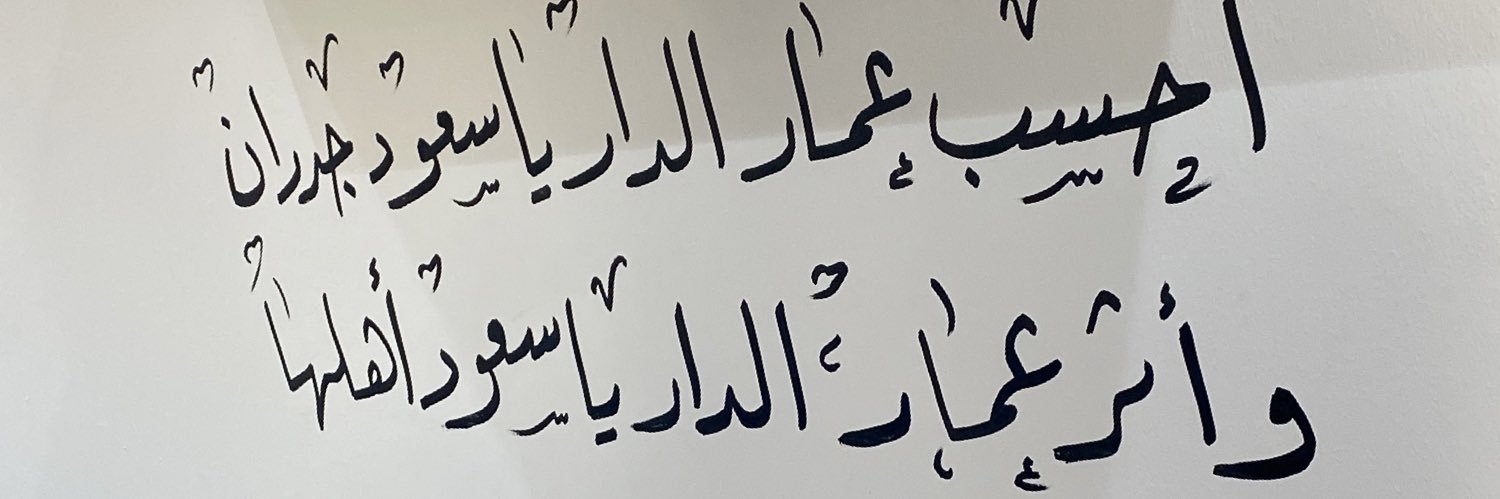 احسب عمار الدار يا سعود جدران
وأثر عمار الدار يا سعود أهلها